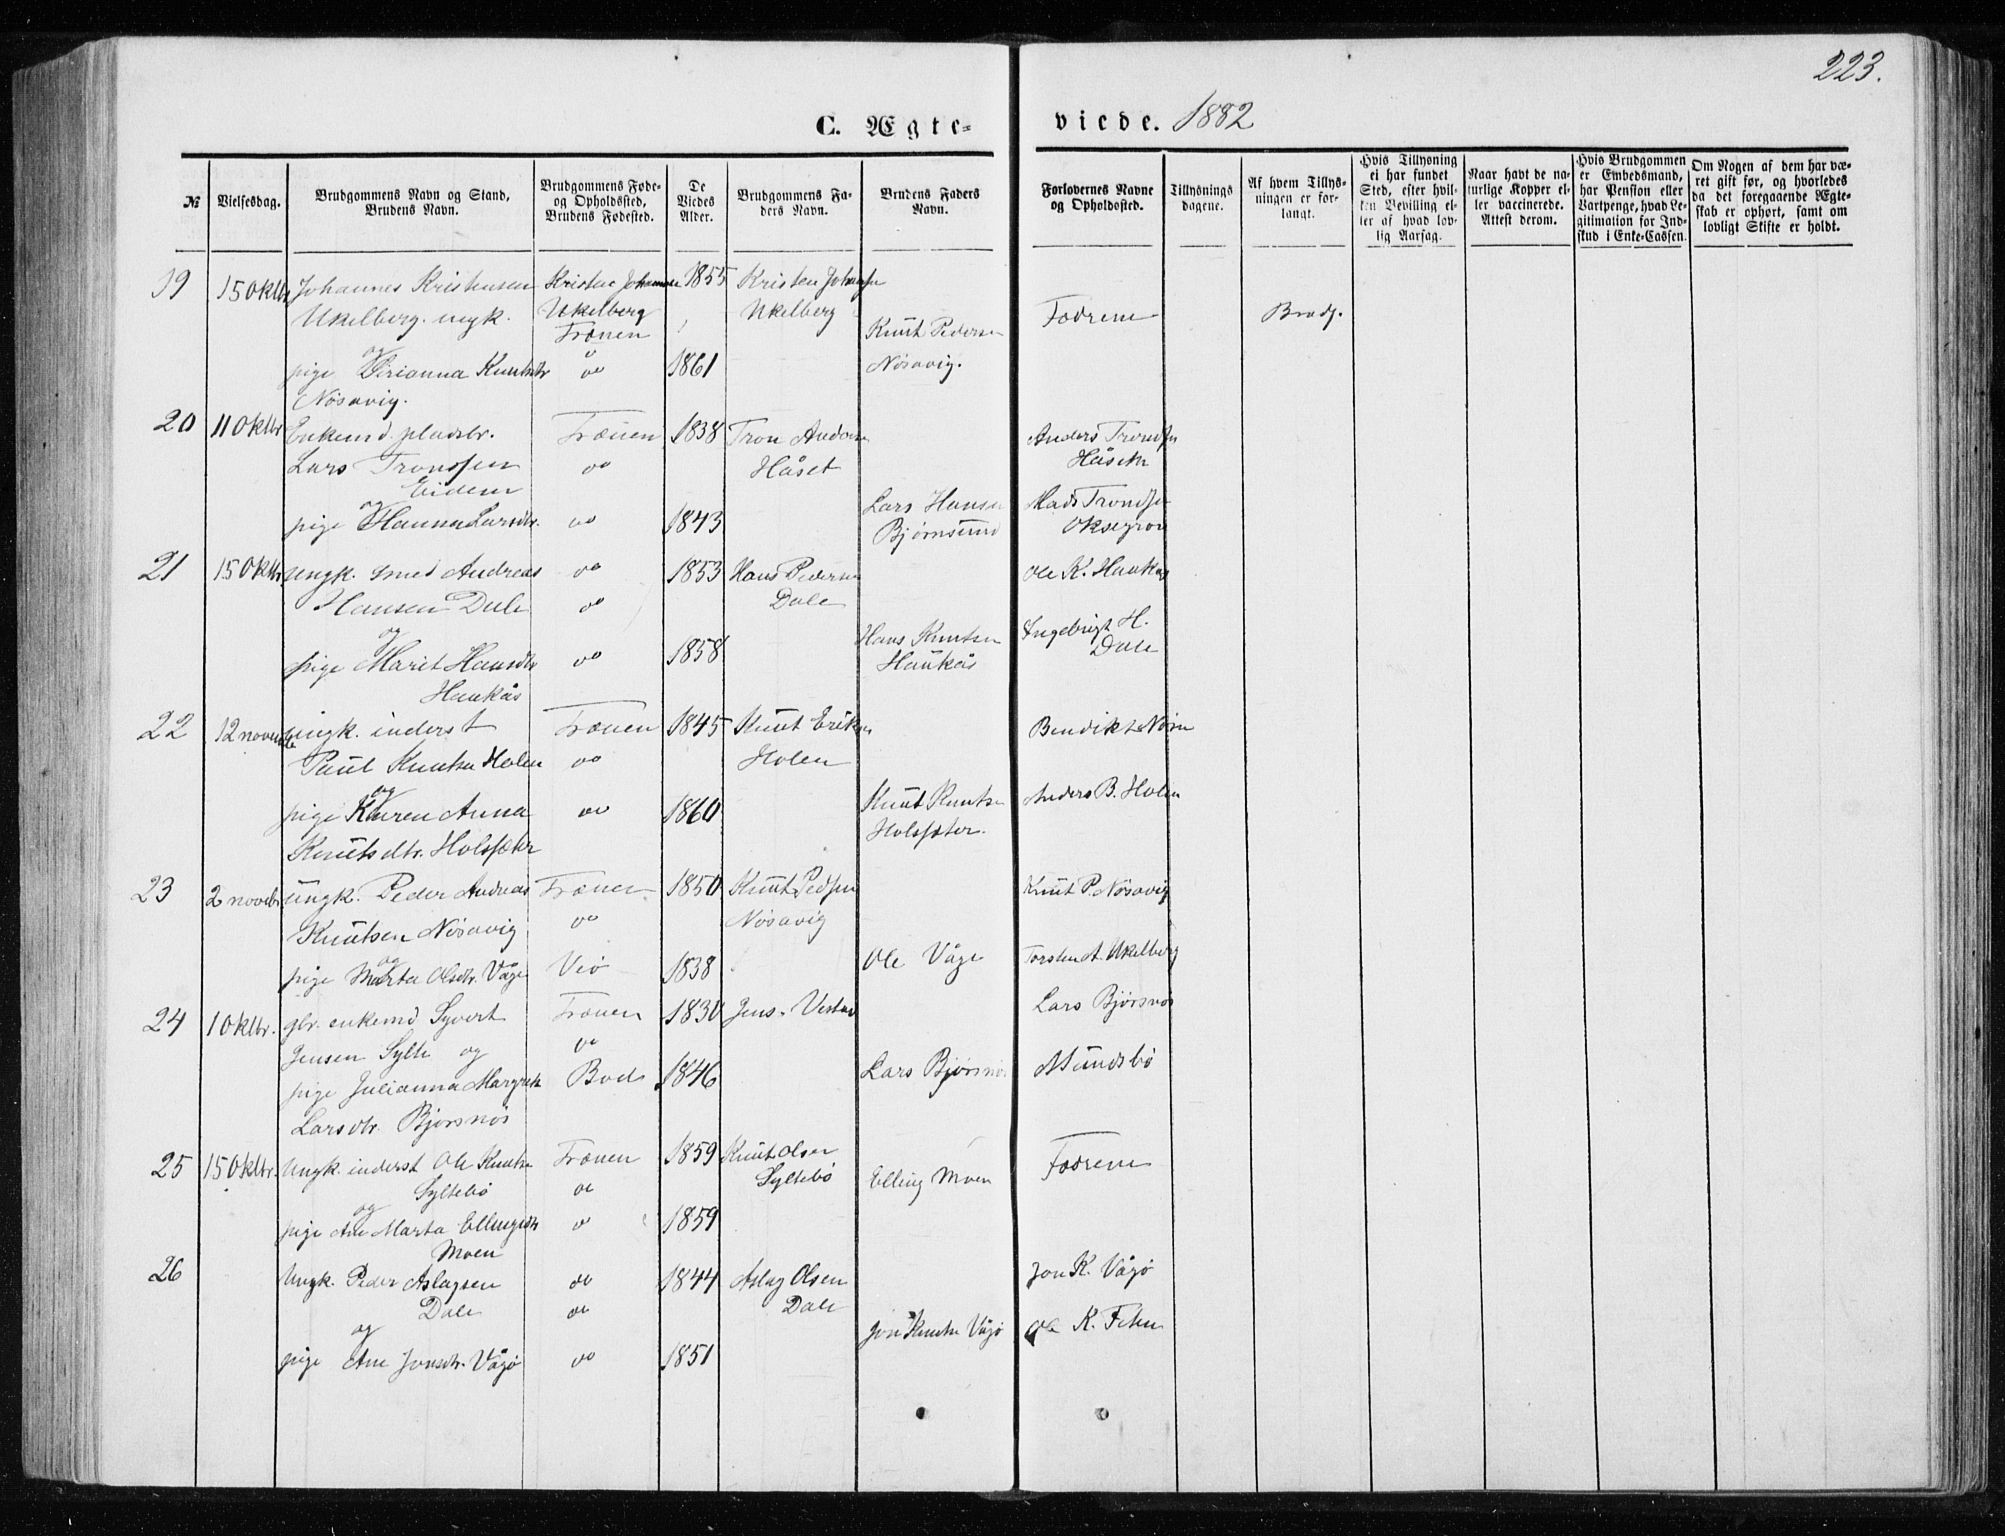 223.
C. Ægte- viede. 1882
№
Vielsesdag.
Brudgommens Navn og Stand,
Brudens Navn.
Brudgommens Føde-
og Opholdssted,
Brudens Fødested.
De
Viedes
Alder.
Brudgommens Fa-
ders Navn.
Brudens Faders
Navn.
Forlovernes Navne
og Opholdssted.
Tillysnings
dagene.
Af hvem Tillys-
ningen er for-
langt.
Hvis Tillysning
ei har fundet
Sted, efter hvil-
ken Bevilling el-
ler af hvad lov-
lig Aarsag.
Naar havt de na-
turlige Kopper el-
ler vaccinerede.
Attest derom.
Hvis Brudgommen
er Embedsmand,
har Pension eller
Vartpenge, hvad Le-
gitimation for Ind-
skud i Enke-Cassen.
Om Nogen af dem har væ-
ret gift før, og hvorledes
da det foregaaende Ægte-
skab er ophørt, samt om
lovligt Skifte er holdt.
19 15 Oktbr Johannes Kristensen Kristen Johansen 1855 Kristen Johansen
Ukelberg. ungk. Ukelberg Ukelberg Fædrene Brudg.
Frænen Knut Pedersen
og
pige Kunutsdtr do 1861 Nösavig.
Nösavig.
20 11 Oktbr Enkemd. pladsbr. Frænen 1838 Tron Andersen Anders Trondsen
Lars Tronssen do Håset Håseth
Eidem
og Lars Hansen Mads Trondsen
pige Hanna Larsdtr. do 1843 Bjørnsund
21 15 Oktbr ungk. smed Andreas do 1853 Hans Pedersen Ole K. Haukås
Hansen Dale do Dale
og Hans Knutsen Ingebrigt H.
pige Marit Hansdtr do 1858 Haukås Dale
Haukås
22 12 novembr ungk. inderst Frænen 1845 Knut Eriksen Bendikt
Paul Knutsen Holen do Holen
og Knut Knutsen Anders B. Holen
pige Karen Anna do 1860 Holssæter.
Knutsdtr. Holssæter
23 2 novbr ungk. Peder Andreas Frænen 1850 Knut Pedsen Knut P. Nösavig
Knutsen Nösavig do Nösavig
og Ole Våge Torsten A. Ukelberg
pige Marta Olsdtr. Våge Veö 1838
24 1 Oktbr. gbr. enkemd Syvert Frænen 1830 Jens Vestad Lars Bjørsnös
Jensen Sylte og do
pige Julianna Margrete Bod 1846 Lars Bjørsnös
Larsdtr. Bjørsnös
25 15 Oktbr. Ungk. inderst Ole Knutsen Frænen 1859 Knut Olsen Fædrene
Syltebö do Syltebö Elling Moen
og
pige Ane Marta Ellingsdtr do 1859
Moen
26 Ungk. Peder Aslagsen do 1844 Aslag Olsen Jon K. Vågö
Dale do Dale
og Jon Knutsen Vågö Ole K.
pige Ane Jonsdtr. Vågö do 1851